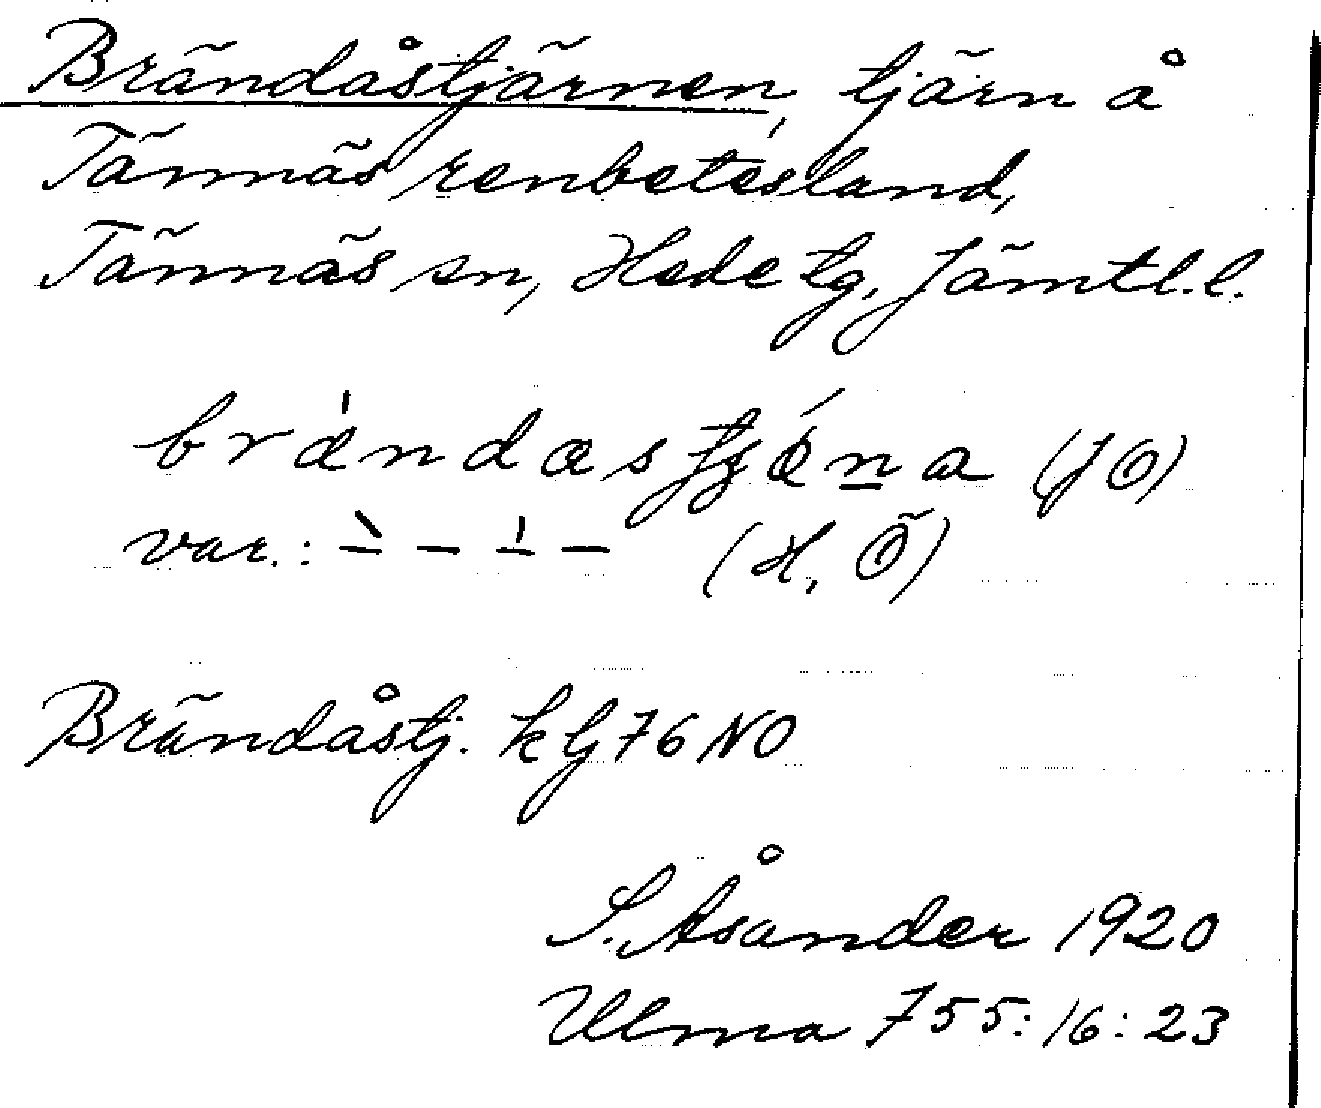 Brändåstjärnen, tjärn å
Tännäs renbetesland,
Tännäs sn, Hede tg, Jämtl.l.
brændastjǽna (JÖ)
var.: ̀– – ̍– – (H, Ö)
Brändåstj. k bj 76 NO
S. Åsander 1920
Ulma 755:16:23